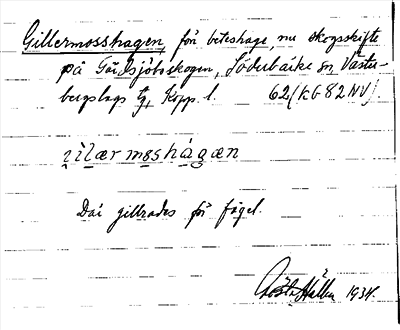 Gillermosshagen, förr beteshage, nu skogsskifte
på Gårdsjöboskogen, Söderbärke sn, Väster-
bergslags tg, Kopp. l. 62 (KG 82 NV).
jìlærmoshágæn
Där gillrades för fågel.
Gösta Hallen 1934.